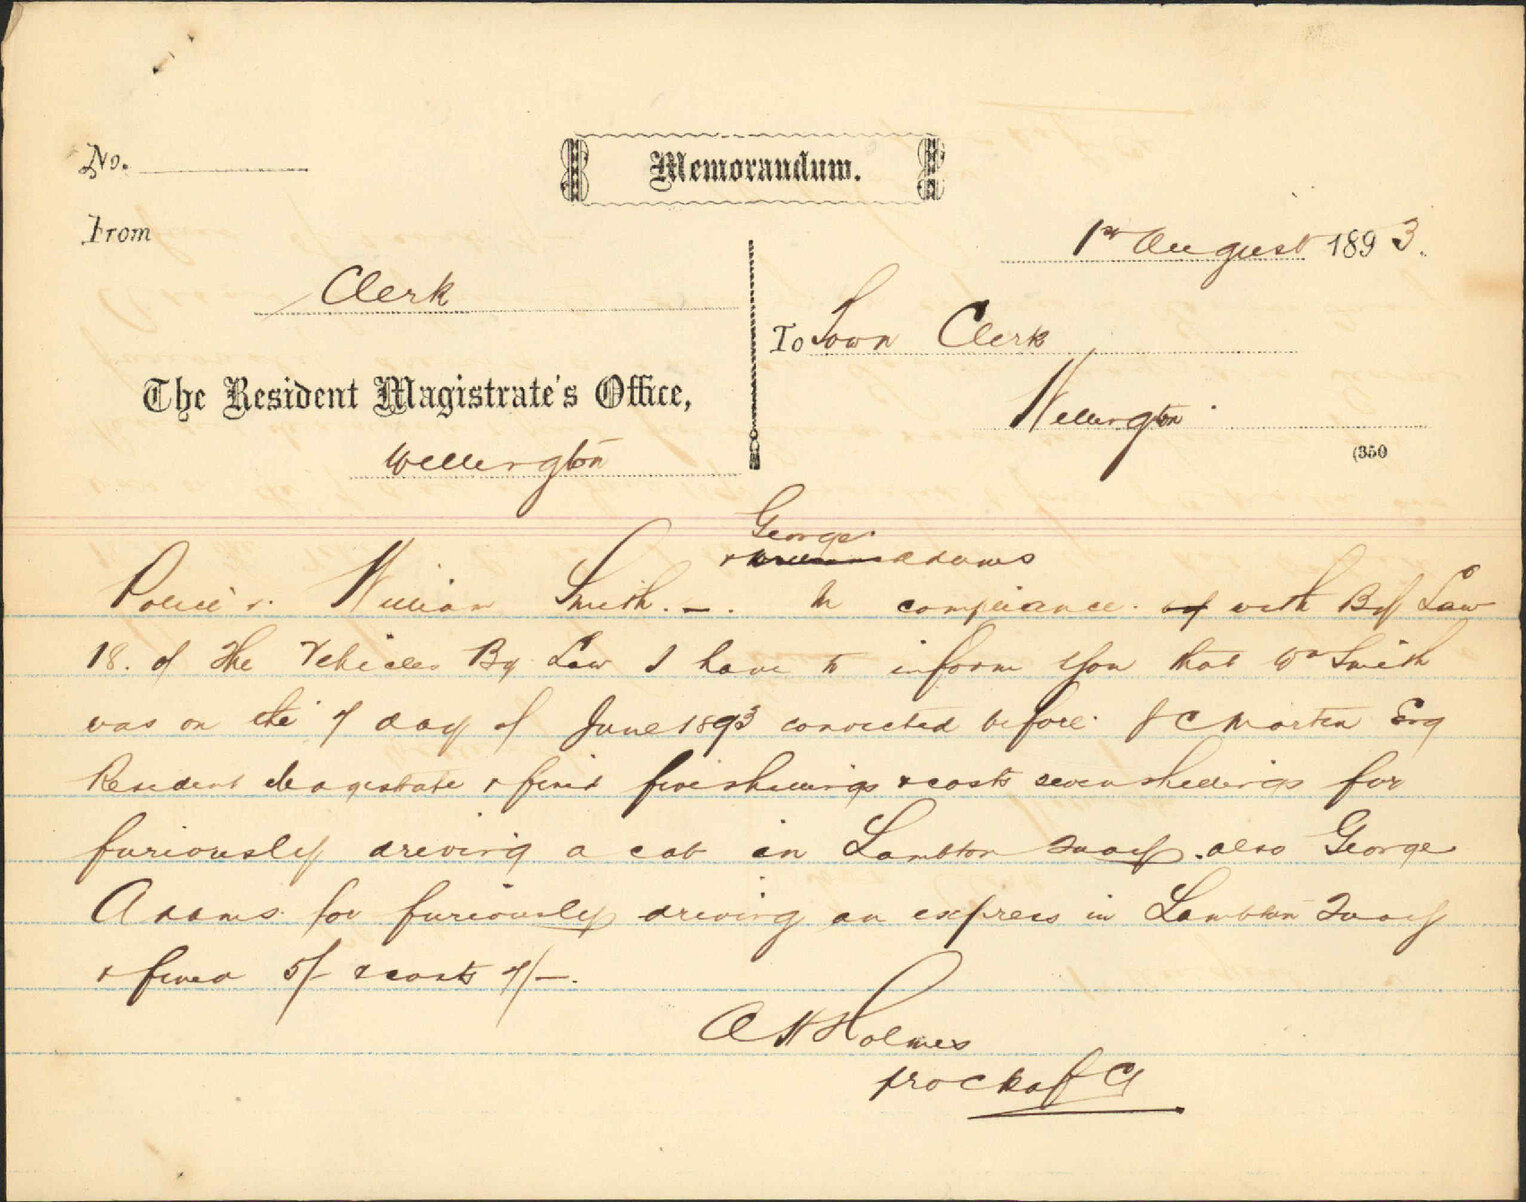 No.
Memorandum.
From
1st August 1893.
Clerk
To Town Clerk
The Resident Magistrate's Office,
Wellington
Wellington
(350
George
& Adams
Police v. William Smith. —. In compliance with By Law
18. of The Vehicles By Law I have to inform you that Wm Smith
was on the 7 day of June 1893 convicted before J C Martin Esq
Resident Magistrate & fined five shillings & costs seven shillings for
furiously driving a cab in Lambton Quay. also George
Adams for furiously driving an express in Lambton Quay
& fined 5/- & costs 7/-.
A H Holmes
pro Ck of Ct